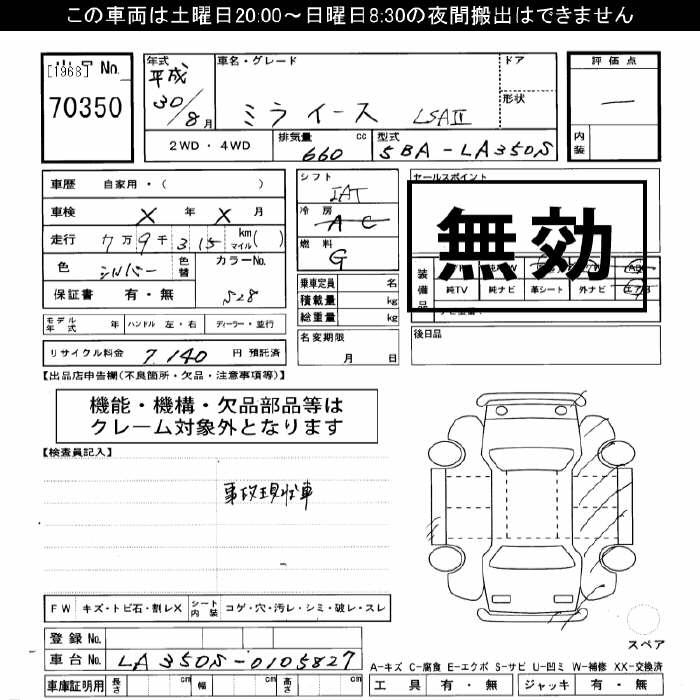 この車両は土曜日20:00〜日曜日8:30の夜間搬出はできません
[1968] No. 70350
年式 平成 30/8月
車名・グレード ミライース LSAⅢ
ドア
形状
評価点 —
内装
2WD・4WD
排気量 660 cc
型式 5BA-LA350S
車歴 自家用・( )
車検 X年 X月
走行 7万9千315 km マイル( )
色 シルバー 色替 カラーNo. S28
保証書 有・無
モデル年式 年 ハンドル 左・右 ディーラー・並行
リサイクル料金 7,140 円 預託済
シフト IAT
冷房 AC
燃料 G
乗車定員 名
積載量 kg
総重量 kg
名変期限 月 日
セールスポイント
無効
装備品
純TV 純ナビ 革シート 外ナビ エアB
後日品
【出品店申告欄(不良箇所・欠品・注意事項等)】
機能・機構・欠品部品等は
クレーム対象外となります
【検査員記入】
事故現状車
FW キズ・トビ石・割レX シート内装 コゲ・穴・汚レ・シミ・破レ・スレ
登録No.
車台No. LA350S-0105827
車庫証明用 長さ cm 幅 cm 高さ cm
スペア
A-キズ C-腐食 E-エクボ S-サビ U-凹ミ W-補修 XX-交換済
工具 有・無 ジャッキ 有・無